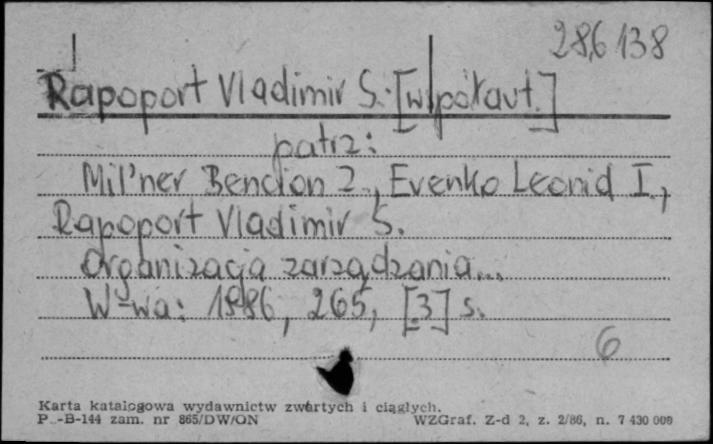 286 138
Rapoport Vladimir S. [współaut.]
patrz:
Mil'ner Bencion Z., Evenko Leonid I.,
Rapoport Vladimir S.
Organizacja zarządzania...
W-wa: 1986, 265, [3] s.
6
Karta katalogowa wydawnictw zwartych i ciągłych.
P.-B-144 zam. nr 865/DW/ON WZGraf. Z-d 2, z. 2/86, n. 7 430 000